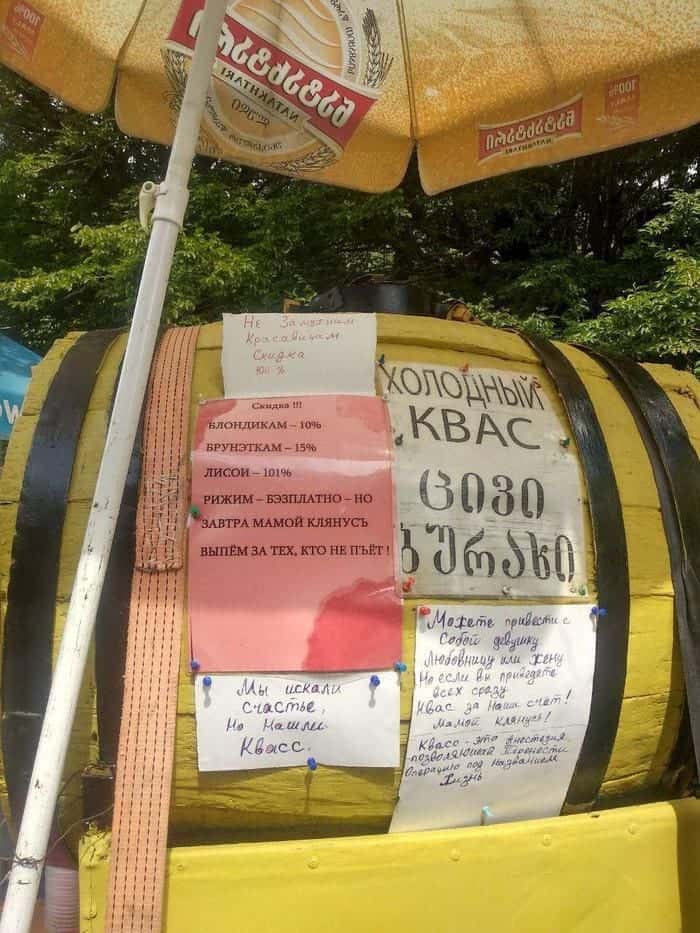 ნატახტარი
NATAKHTARI
ლუდი
100%
ნატახტარი
NATAKHTARI
100%
Не Замужним
Красавицам
Скидка
100-%
Скидка !!!
БЛОНДИКАМ – 10%
БРУНЭТКАМ – 15%
ЛИСОИ – 101%
РИЖИМ – БЭЗПЛАТНО – НО
ЗАВТРА МАМОЙ КЛЯНУСЪ
ВЫПЁМ ЗА ТЕХ, КТО НЕ ПЪЁТ !
ХОЛОДНЫЙ
КВАС
ცივი
ბურახი
Мы искали
счастье,
Но Нашли
Квасс.
Можете привести с
Собой девушку
Любовницу или жену
Но если вы приведёте
всех сразу
Квас за наш счёт!
Мамой клянусь!
Квасс - это Анестезия,
позволяющая Перенести
Операцию под Названием
Жизнь